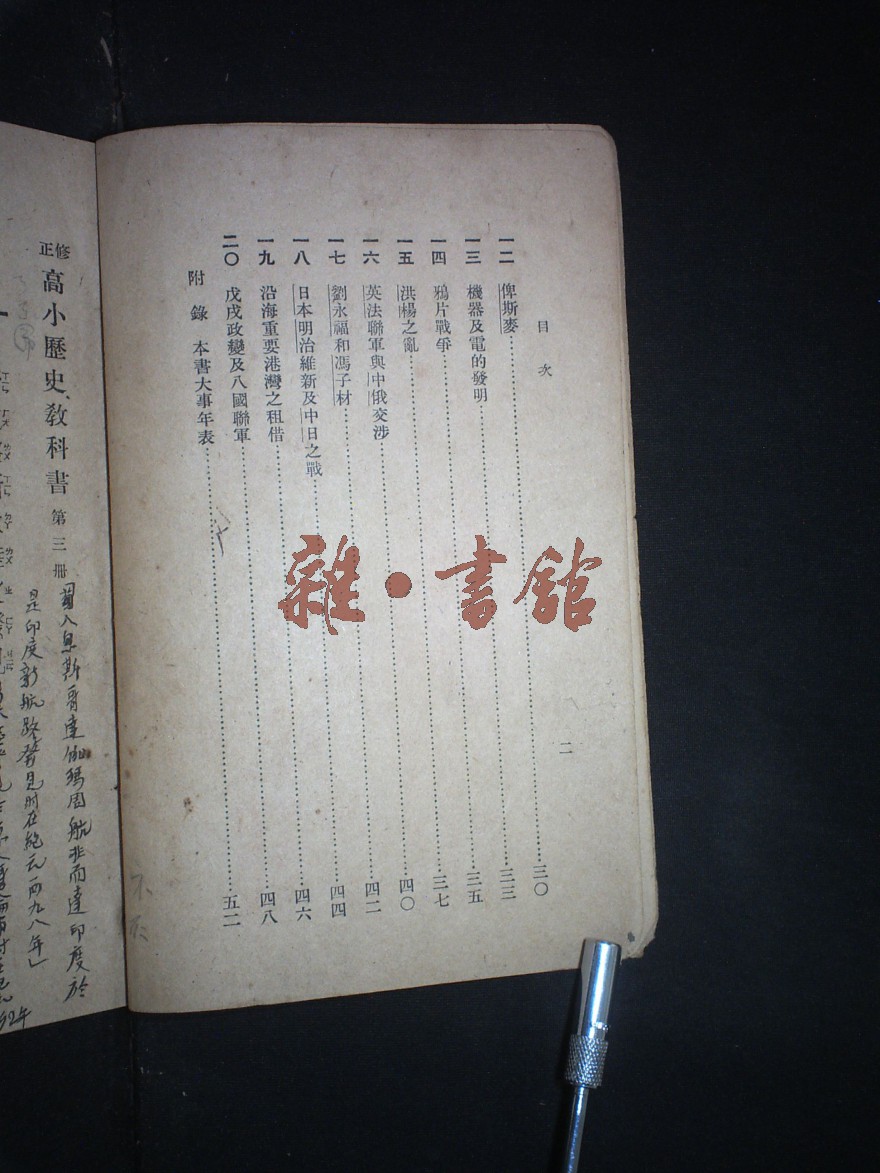 目次
一二 俾斯麥……三〇
一三 機器及電的發明……三三
一四 鴉片戰爭……三五
一五 洪楊之亂……三七
一六 英法聯軍與中俄交涉……四〇
一七 劉永福和馮子材……四二
一八 日本明治維新及中日之戰……四四
一九 沿海重要港灣之租借……四六
二〇 戊戌政變及八國聯軍……四八
附錄 本書大事年表……五二
二
雜·書館
修正高小歷史教科書 第三册
斯哥達伽瑪周航非而達印度於
是印度新航路發見時在紀元一四九八年」